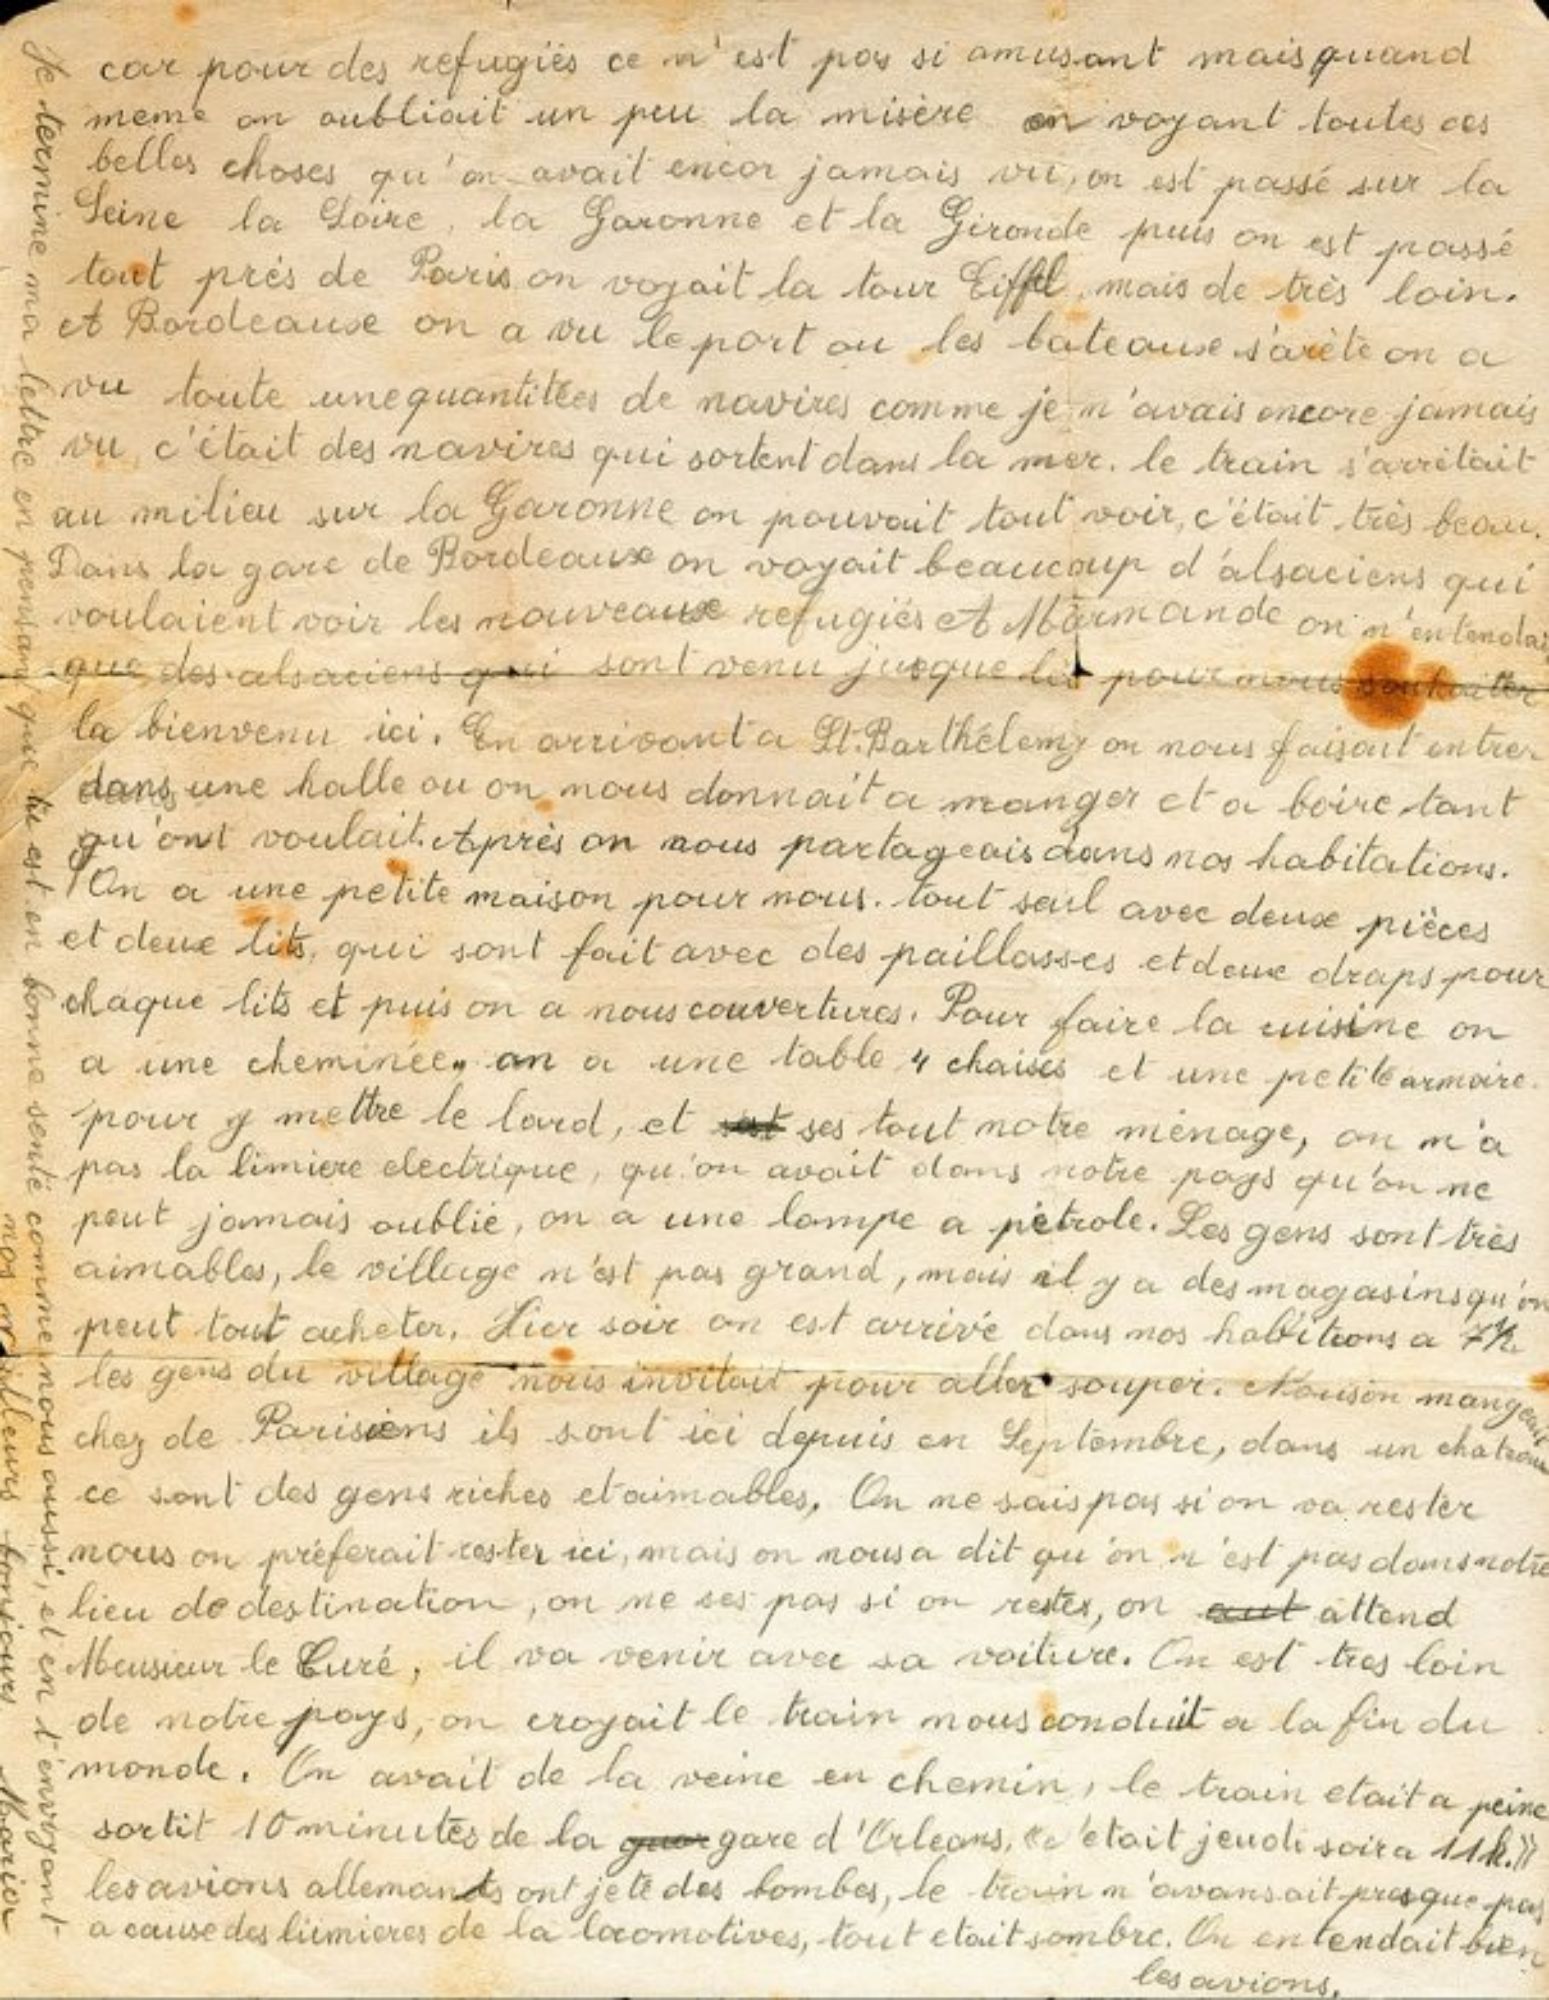 car pour des refugiés ce n'est pas si amusant mais quand
meme on oubliait un peu la misère en voyant toutes ces
belles choses qu'on avait encor jamais vu, on est passé sur la
Seine la Loire, la Garonne et la Gironde puis on est passé
tout prés de Paris on voyait la tour Eiffel, mais de très loin.
A Bordeause on a vu le port ou les bateause s'arète on a
vu toute une quantitées de navires comme je n'avais encore jamais
vu, c'était des navires qui sortent dans la mer. le train s'arrêtait
au milieu sur la Garonne on pouvait tout voir, c'était très beau.
Dans la gare de Bordeause on voyait beaucoup d'alsaciens qui
voulaient voir les nouveause refugiés A Marmande on n'entendait
que des alsaciens qui sont venu jusque là pour nous souhaiter
la bienvenu ici. En arrivant a St. Barthélemy on nous faisait entrer
dans une halle ou on nous donnait a manger et a boire tant
qu'ont voulait. Après on nous partageais dans nos habitations.
On a une petite maison pour nous. tout seul avec deuse pièces
et deuse lits, qui sont fait avec des paillasses et deuse draps pour
chaque lits et puis on a nous couvertures. Pour faire la cuisine on
a une cheminée, on a une table 4 chaises et une petite armoire.
pour y mettre le lard, et ses tout notre ménage, on n'a
pas la limiere electrique, qu'on avait dans notre pays qu'on ne
peut jamais oublié, on a une lampe a pétrole. Les gens sont très
aimables, le village n'est pas grand, mais il y a des magasins qu'on
peut tout acheter. Hier soir on est arrivé dans nos habitions a 7h
les gens du village nous invitait pour aller souper. Nous on mangeait
chez de Parisiens ils sont ici depuis en Septembre, dans un chateau
ce sont des gens riches et aimables, On ne sais pas si on va rester
nous on préferait rester ici, mais on nous a dit qu'on n'est pas dans notre
lieu de destination, on ne ses pas si on restes, on attend
Meusieur le Curé, il va venir avec sa voiture. On est tres loin
de notre pays, on croyait le train nous conduit a la fin du
monde. On avait de la veine en chemin, le train etait a peine
sortit 10 minutes de la gare d'Orleans, c'etait jeudi soir a 11h.
les avions allemands ont jeté des bombes, le train n'avansait presque pas
a cause des liimieres de la locomotives, tout etait sombre. On entendait bien
les avions.
Je termine ma lettre en pensant que tu est en bonne senté comme nous aussi, et en t'envoyant
nos meilleurs bonjours